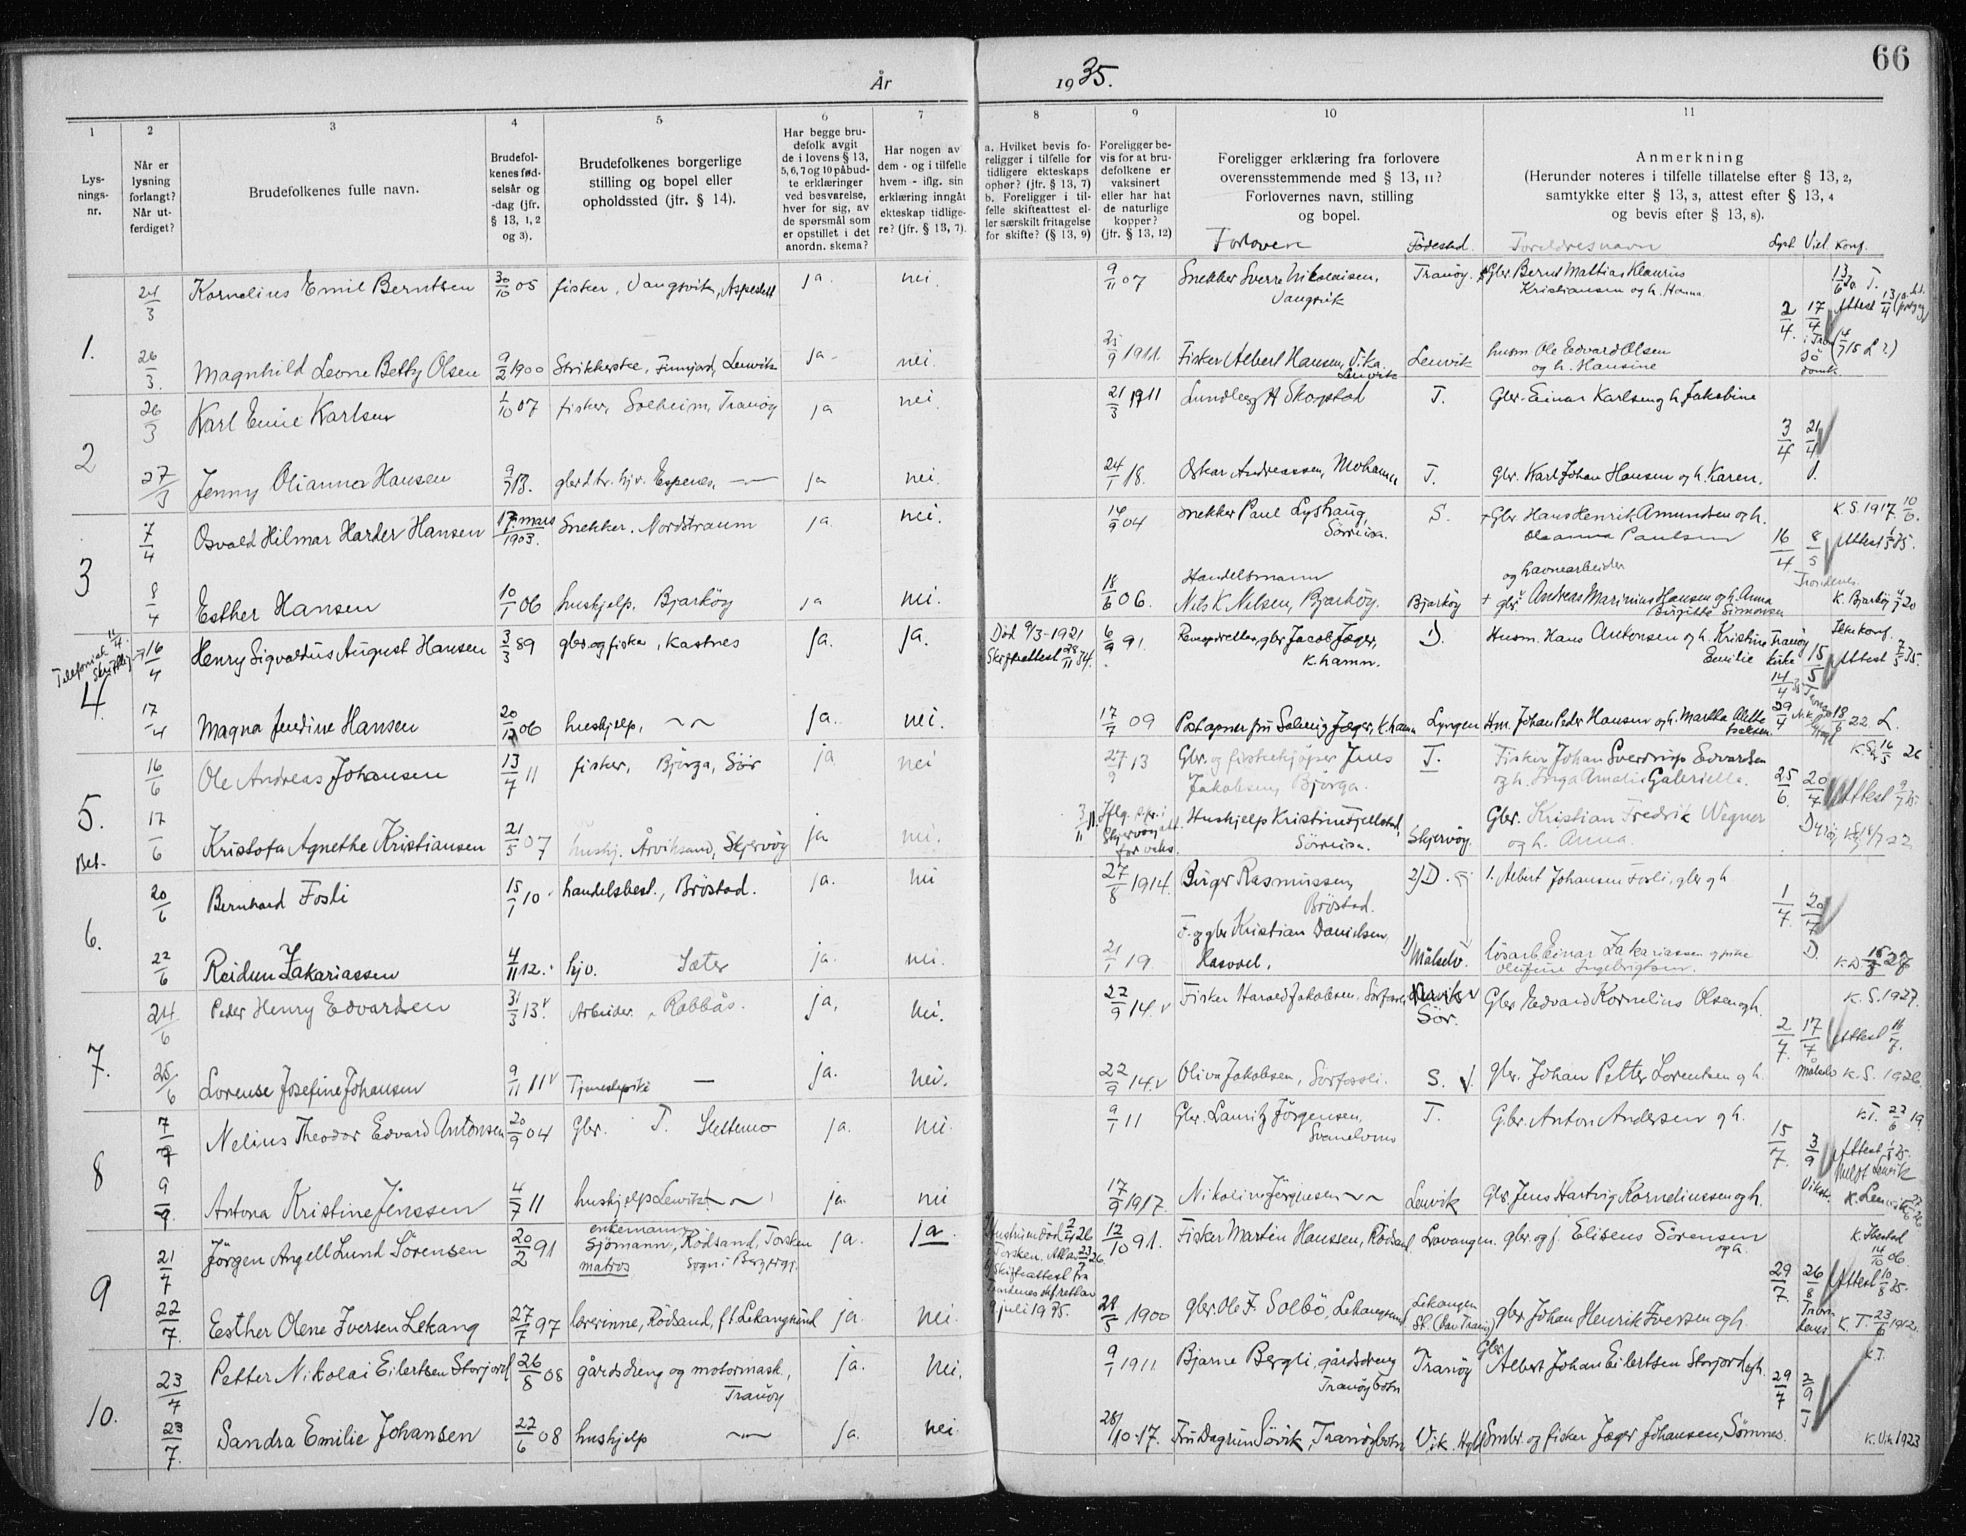 66
År 1935.
1 2 3 4 5 6 7 8 9 10 11
Lysningsnr.
Når er lysning forlangt? Når utferdiget?
Brudefolkenes fulle navn.
Brudefolkenes fødselsår og -dag (jfr. § 13, 1, 2 og 3).
Brudefolkenes borgerlige stilling og bopel eller opholdssted (jfr. § 14).
Har begge brudefolk avgit de i lovens § 13, 5, 6, 7 og 10 påbudte erklæringer ved besvarelse, hver for sig, av de spørsmål som er opstillet i det anordn. skema?
Har nogen av dem - og i tilfelle hvem - iflg. sin erklæring inngåt ekteskap tidligere? (jfr. § 13, 7).
a. Hvilket bevis foreligger i tilfelle for tidligere ekteskaps ophør? (jfr. § 13, 7) b. Foreligger i tilfelle skifteattest eller særskilt fritagelse for skifte? (§ 13, 9)
Foreligger bevis for at brudefolkene er vaksinert eller har hat de naturlige kopper? (jfr. § 13, 12)
Foreligger erklæring fra forlovere overensstemmende med § 13, 11? Forlovernes navn, stilling og bopel.
Anmerkning
(Herunder noteres i tilfelle tillatelse efter § 13, 2, samtykke efter § 13, 3, attest efter § 13, 4 og bevis efter § 13, 8).
Forlovere Fødested Foreldresnavn Lysl. Viel. Konf.
1.
24/3 Kornelius Emil Berntsen 30/10 05 fisker, Vangsvik, ja. nei. 9/11 07 Snekker Sverre Nikolaisen, Vangsvik Tranøy. Gbr. Bernt Mattias Klaurius Kristiansen og h. Hanna 2/4 17/4 Attest 13/4
26/3. Magnhild Leone Betty Olsen 9/2 1900 Finnjord, Lenvik ja nei. 1911. Fisker Albert Hansen, Vika Lenvik Lenvik husm Ole Edvard Olsen og h. Hansine
2
26/3 Karl Emil Karlsen 1/10 07 fisker, Solheim, Tranøy ja nei. 21/3 1911 Lundberg H Skogstad T. Gbr. Einar Karlsen og h Jakobine 3/4 21/4
27/3 Jenny Olianna Hansen 9/9 13. gbrdtr. hjv. Espenes, ja nei. 24/1 18. Oskar Andreassen, Mohamn T. Gbr. Karl Johan Hansen og h. Karen.
3
7/4 Osvald Hilmar Harder Hansen 17. mars 1903. Snekker. Nordstraum ja. nei. 14/9 04 snekker Paul Lyshaug, Sørreisa. S. + Gbr Hans Henrik Amundsen og h. Oleanna Paulsen 16/4 8/5 K. S. 1917. 10/6. Attest 1/5 35.
8/4 Esther Hansen 10/1 06 hushjelp, Bjarkøy ja nei. 18/6 06. Handelsmann Nils K Nilsen, Bjarkøy. Bjarkøy og havnearbeider + gbr Andreas Marinius Hansen og h. Anna Birgitte Simonsen Trondenes. K. Bjarkøy 20
4.
Telefonisk 11/4. Skriftlig → 16/4 Henry Sigvaldus August Hansen 3/3 89 gbr. og fisker, Kastnes ja. ja. Død 9/3-1921 Skifteattest 28/11 34. 6/9 91. gbr Jacob Jæger, K.hamn. D. Husm. Hans Antonsen og h. Kristine Emilie Tranøy Kirke 15/5 Ikke konf. Attest 7/5 35.
17/4 Magna Jendine Hansen 20/12 06 hushjelp, ja. nei. 17/7 09 Poståpner fru Solveig Jæger, K.hamn Lyngen Hm. Johan Peder Hansen og h. Martha Aletta Isaksen. 29/4 18/6 22 L.
5.
Bet.
16/6 Ole Andreas Johansen 13/7 11 fisker, Bjorga, Sør ja nei 27/9 13 Gbr. og fiskekjøper Jens Jakobsen, Bjorga. T. Fisker Johan Sverdrup Edvardsen og h. Inga Amalie Gabriella. 25/6. 20/7 K. S. 16/5 26 Attest 9/7 35.
17/6 Kristofa Agnethe Kristiansen 21/5 07 hushj. Årviksand, Skjervøy ja nei. 3/11 11. Iflg. Skjervøy for vaks. Hushjelp Kristine Fjellstad, Sørreisa. Skjervøy. Gbr. Kristian Fredrik Wegner og h. Anna. Dyrøy
6.
20/6 Bernhard Fosli 15/1 10 handelsbest., Brøstad. ja. nei 27/8 1914. Birger Rasmussen, Brøstad. 2) D. 1. Albert Johansen Fosli, gbr og h. 1/7 20/7
22/6 Reidun Zakariassen 4/11 12. hjv. Sæter ja. nei. 21/1 19. F. og gbr Kristian Danielsen, Hasvoll. 1) Målselv. løsarb Einar Zakariassen og pike Olufine Ingebrigtsen. D. K. D 27
7.
24/6 Peder Henry Edvardsen 31/3 13 Arbeider, Rabbås. ja, nei. 22/9 14. Fisker Harald Jakobsen, Sørfossli Sør. Gbr. Edvard Kornelius Olsen og h. 2/7. 17/7 K. S. 1927. Attest 16/7.
25/6 Lorense Josefine Johansen 9/11 11 Tjenestepike — ja. nei. 22/9 14. Oliva Jakobsen, Sørfossli. S. gbr. Johan Petter Lorentsen og h. Målselv K. S. 1926.
8
7/7 Nelius Theodor Edvard Antonsen 20/9 04 Gbr. T. Slettemo ja. nei. 9/1 11 Gbr. Lauritz Jørgensen, Svanelvmo T. Gbr. Anton Andersen og h. 15/7. 3/9 K.T. 22/6 19. Attest 1/8 35.
9/7 Antona Kristine Jenssen 4/7 11 hushjelp Lenvik ja nei 17/9 1917. Nikoline Jørgensen Lenvik Gbr. Jens Hartvig Korneliussen og h. K. Lenvik
9
21/7 Jørgen Angell Lund Sørensen 20/2 91 enkemann Sjømann, Rødsand, Torsken matros Sogn i Berg prgj. ja. ja. Hustrun død 2/4 26 Torsken. Skifteattest fra Trondenes skifterett av 9 juli 1935. 12/10 91. Fisker Martin Hanssen, Rødsand Lavangen. gbr. og f. Elisens Sørensen og h. 29/7. 26/8 Trondenes. K. Ibestad 14/10 06. Attest 10/8 35.
22/7. Esther Olene Iversen Lekang 27/7 97 lærerinne, Rødsand, f. t. Lekangsund ja. nei. 28/5 1900 gbr. Ole F. Solbø, Lekangsund Lekangen St. (Sør Tranøy) gbr. Johan Henrik Iversen og h. K. T. 23/6 1912.
10.
23/7 Petter Nikolai Eilertsen Storjord 26/8 08 gårdsdreng og motormask., Tranøy ja. nei. 9/1 1911. Bjarne Bergli, gårdsdreng Tranøybotn Tranøy Gbr. Albert Johan Eilertsen Storjord og h. 29/7 2/9 K.T.
23/7. Sandra Emilie Johansen 22/6 08 hushjelp ja. nei. 28/10-17. Fru Dagrun Søvik, Tranøybotn Vik. Hgld Småbr. og fisker Jæger Johansen, Sømnes. K. Vik 1923